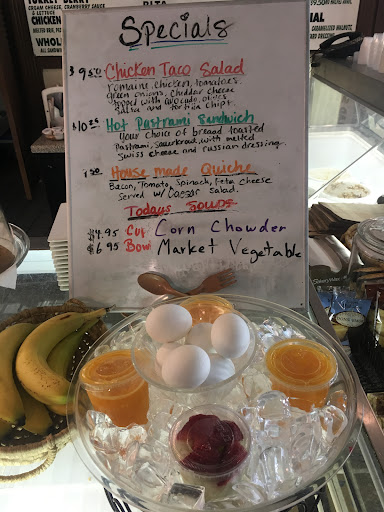 TURKEY BERRY
CREAM CHEESE, CRANBERRY SAUCE
& LETTUCE
CHICKEN
WHOL
ALL SA
PITA
IAL
CARAMELIZED WALNUTS,
Specials
$9.50 Chicken Taco Salad
Romaine, chicken, tomatoes,
green onions, cheddar cheese
topped with avocado, olives
salsa and tortilla chips.
$10.25 Hot Pastrami Sandwich
Your choice of bread toasted
Pastrami, sauerkraut, with melted
swiss cheese and russian dressing.
House made Quiche
Bacon, Tomato, Spinach, Feta cheese
Served w/ Caesar Salad.
Todays Soups
$4.95 Cup Corn Chowder
$6.95 Bowl Market Vegetable